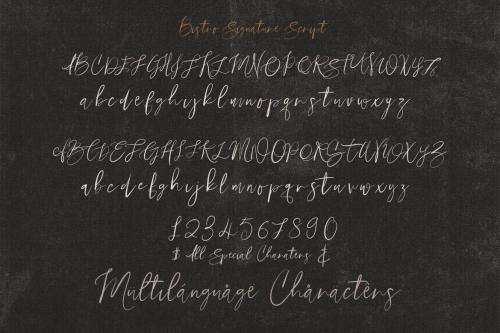 Bistro Signature Script
ABCDEFGHIJKLMNOPQRSTUVWXYZ
abcdefghijklmnopqrstuvwxyz
ABCDEFGHIJKLMNOPQRSTUVWXYZ
abcdefghijklmnopqrstuvwxyz
1234567890
$ All Special Charaters &
Multilánguåge Chåractërs